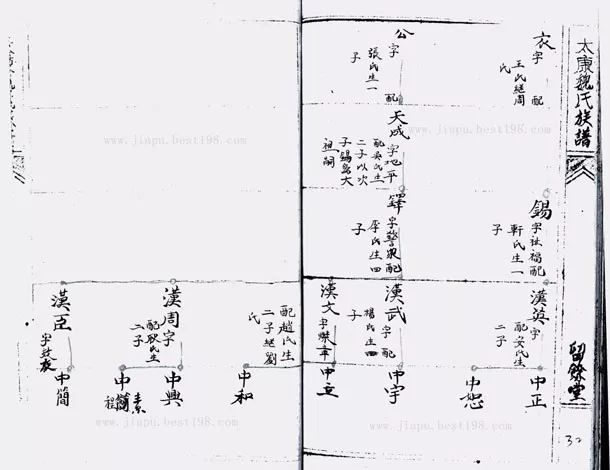 太康魏氏族譜
衣字 配
王氏繼周
氏
公字 配
張氏生一
子
天成字地平
配吳氏生
二子以次
子錫爲大
祖嗣
錫字祉福配
軒氏生一
子
鐸字警衆配
李氏生四
子
漢英字
配安氏生
二子
漢武字 配
楊氏生四
子
漢文字
配趙氏生
二子繼劉
氏
漢周字
配耿氏生
二子
漢臣
中正
中恕
中宇
中立
中和
中興
中簡
中簡
留餘堂
32
www.jiapu.best198.com
www.jiapu.best198.com
www.jiapu.best198.com
www.jiapu.best198.com